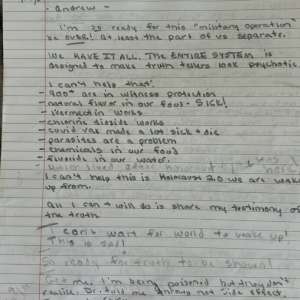 - Andrew -
I'm so ready for this "military operation"
be OVER! At least the part of us separate.
WE HAVE IT ALL. THE ENTIRE SYSTEM is
designed to make truth tellers look psychotic
I can't help that.
- 900+ are in witness protection
- natural flavor in our food - SICK!
- Ivermectin works
- chlorine dioxide works
- covid vax made a lot sick + die
- parasites are a problem
- chemicals in our food
- fluoride in our water.
I can't help this is Holocaust 2.0 we are waking
up from.
All I can + will do is share my testimony of
the truth
I can't wait for world to wake up!
This is
So ready for truth to be shown!
me, I'm being poisoned but they don't
realize. Dr. told me not side effect